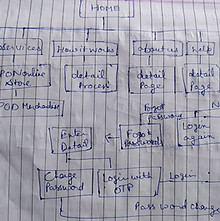 HOME
Services
How it works
about us
help
POD online
Store
detail
Process
detail
Page
detail
Page
POD Merchandise
Forgot
Password
Enter
Detail
Forgot
Password
Login
again
N
Change
Password
Login with
OTP
Login
Password change